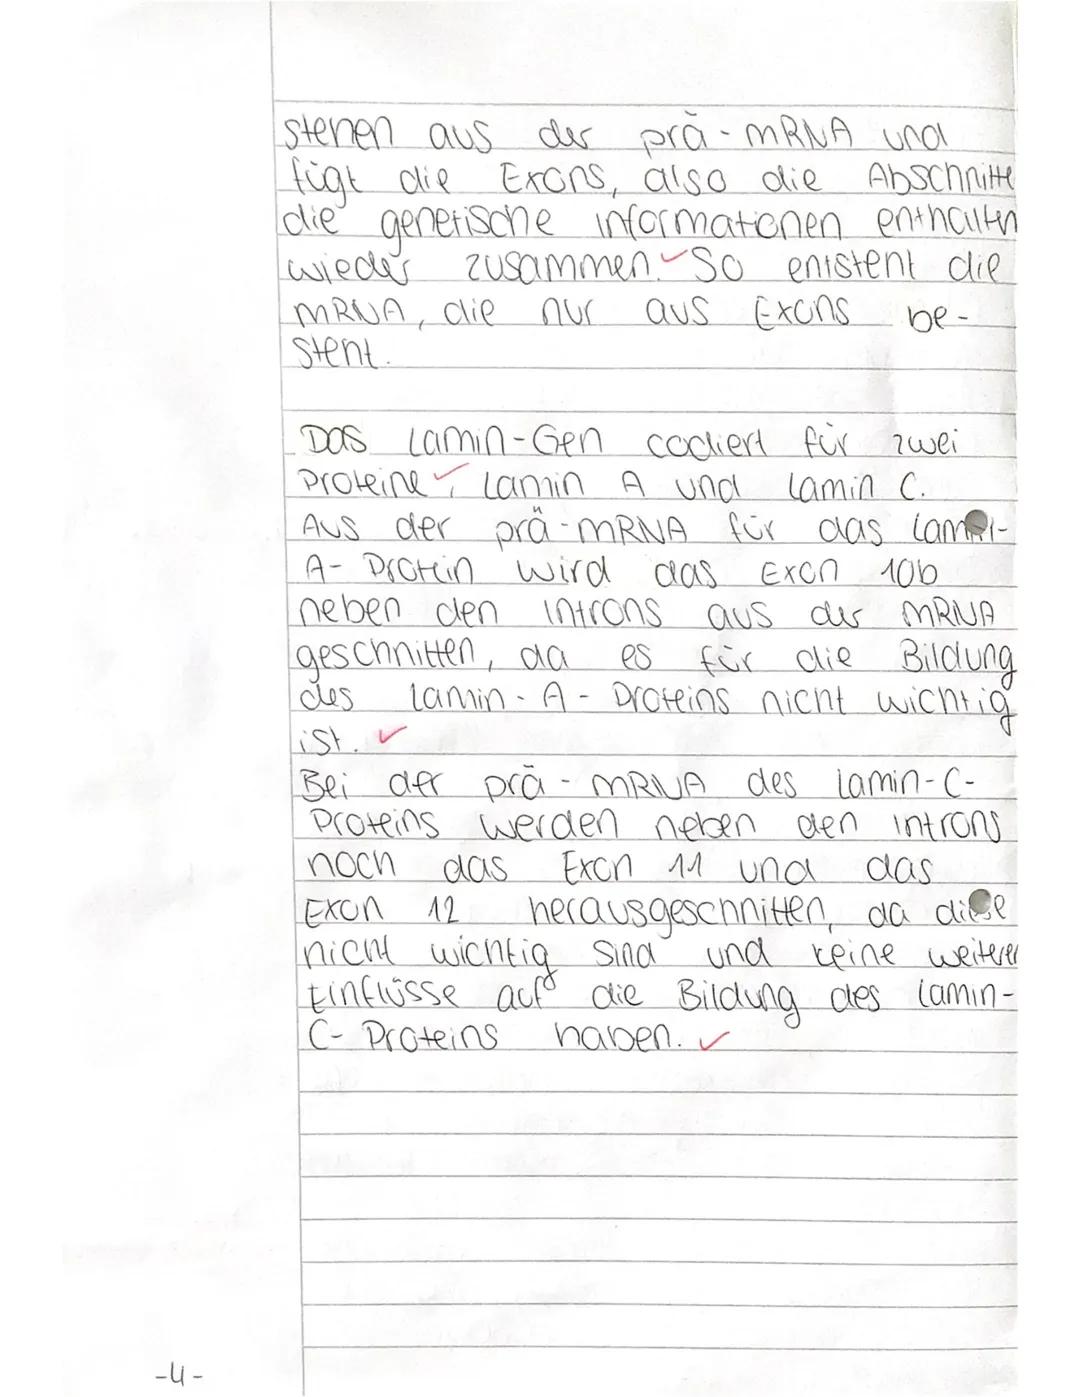 stehen aus der prä-mRNA und
fügt die Exons, also die Abschnitte
die genetische Informationen enthalten
wieder zusammen. So entsteht die
mRNA, die nur aus Exons be-
steht.
Das Lamin-Gen codiert für zwei
Proteine, Lamin A und Lamin C.
Aus der prä-mRNA für das Lamin-
A-Protein wird das Exon 10b
neben den Introns aus der mRNA
geschnitten, da es für die Bildung
des Lamin-A-Proteins nicht wichtig
ist.
Bei der prä-mRNA des Lamin-C-
Proteins werden neben den Introns
noch das Exon 11 und das
Exon 12 herausgeschnitten, da diese
nicht wichtig sind und keine weiteren
Einflüsse auf die Bildung des Lamin-
C-Proteins haben.
-4-